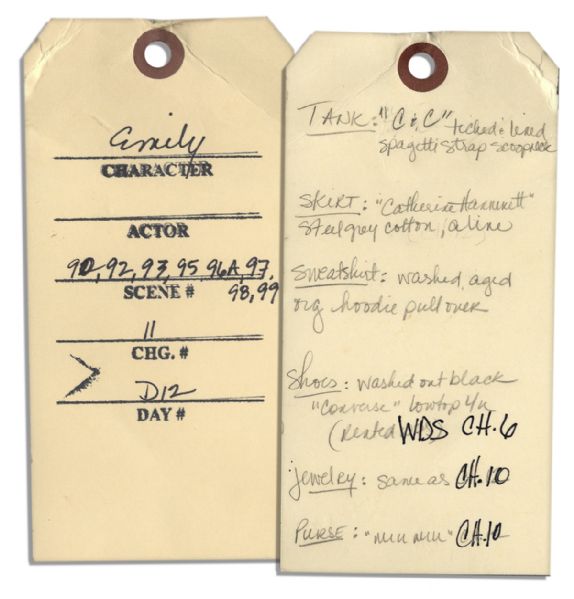 Emily
CHARACTER
ACTOR
90, 92, 93, 95 96A, 97,
98, 99
SCENE #
11
CHG. #
D12
DAY #
TANK: "C & C" teched & lined
spagetti strap scoopneck
SKIRT: "Catherine
Steelgrey cotton, aline
Sweatshirt: washed, aged
org hoodie pullover
Shoes: washed out black
"Converse" lowtop
(Rented WDS CH.6
Jewelry: same as CH.10
PURSE: "miu miu" CH.10